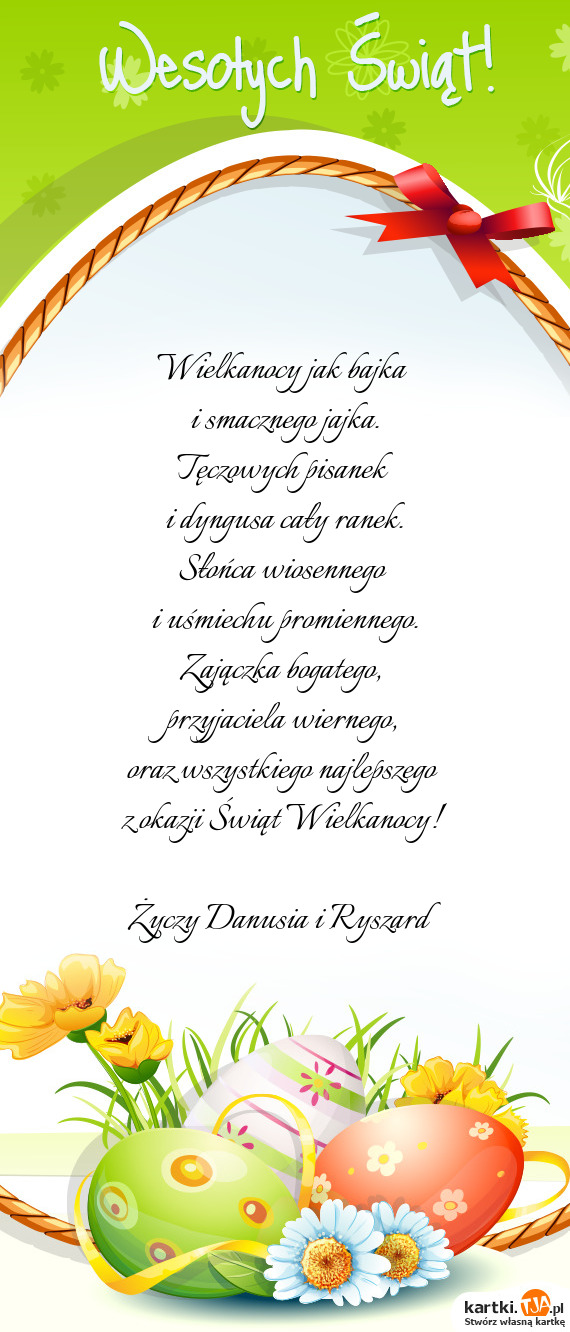 Wesołych Świąt!
Wielkanocy jak bajka
i smacznego jajka.
Tęczowych pisanek
i dyngusa cały ranek.
Słońca wiosennego
i uśmiechu promiennego.
Zajączka bogatego,
przyjaciela wiernego,
oraz wszystkiego najlepszego
z okazji Świąt Wielkanocy!
Życzy Danusia i Ryszard
kartki.TJA.pl
Stwórz własną kartkę